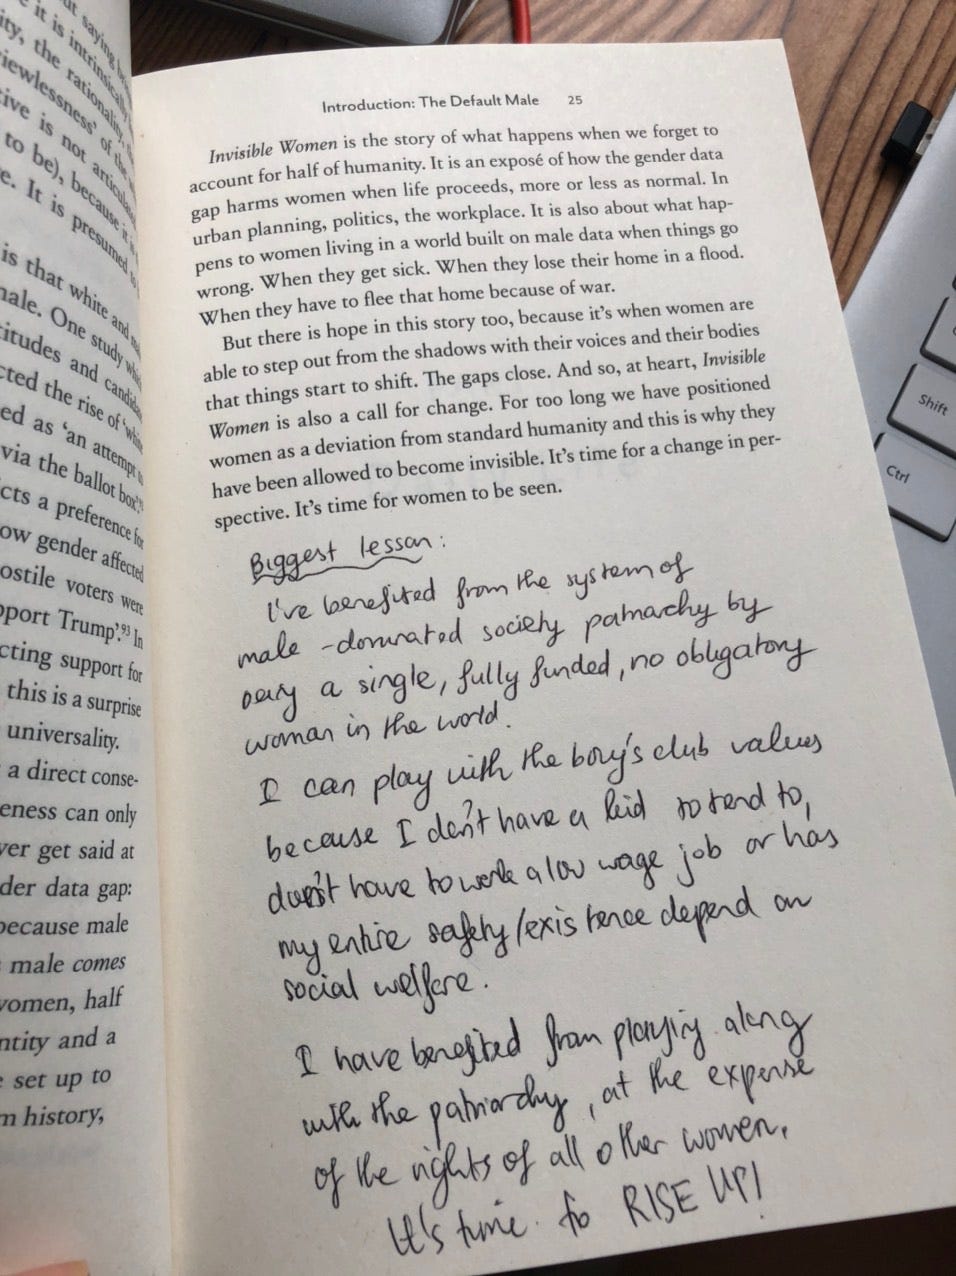 ut saying
it is intrinsically
ity, the rationality,
iewlessness' of the
ive is not articula
to be), because it i
e. It is presumed
is that white and
nale. One study whi
titudes and candida
cted the rise of 'whi
ed as 'an attempt
via the ballot box'.
cts a preference for
ow gender affected
ostile voters were
pport Trump'.93 In
cting support for
this is a surprise
universality.
a direct conse-
eness can only
ver get said at
der data gap:
because male
male comes
women, half
ntity and a
set up to
m history,
Introduction: The Default Male 25
Invisible Women is the story of what happens when we forget to
account for half of humanity. It is an exposé of how the gender data
gap harms women when life proceeds, more or less as normal. In
urban planning, politics, the workplace. It is also about what hap-
pens to women living in a world built on male data when things go
wrong. When they get sick. When they lose their home in a flood.
When they have to flee that home because of war.
But there is hope in this story too, because it's when women are
able to step out from the shadows with their voices and their bodies
that things start to shift. The gaps close. And so, at heart, Invisible
Women is also a call for change. For too long we have positioned
women as a deviation from standard humanity and this is why they
have been allowed to become invisible. It's time for a change in per-
spective. It's time for women to be seen.
Biggest lesson:
I've benefited from the system of
male-dominated society patriarchy by
being a single, fully funded, no obligatory
woman in the world.
I can play with the boy's club values
because I don't have a kid to tend to,
doesn't have to work a low wage job or has
my entire safety/existence depend on
social welfare.
I have benefited from playing along
with the patriarchy, at the expense
of the rights of all other women.
It's time to RISE UP!
Shift
Ctrl